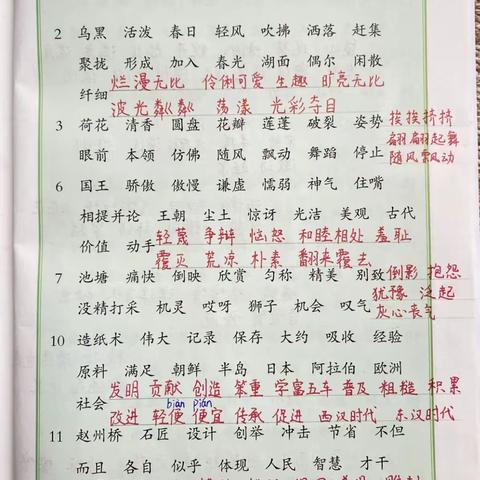 2 乌黑 活泼 春日 轻风 吹拂 洒落 赶集
聚拢 形成 加入 春光 湖面 偶尔 闲散
纤细 烂漫无比 伶俐可爱 生趣 旷亮无比
波光粼粼 荡漾 光彩夺目
3 荷花 清香 圆盘 花瓣 莲蓬 破裂 姿势 挨挨挤挤
翩翩起舞
眼前 本领 仿佛 随风 飘动 舞蹈 停止 随风飘动
6 国王 骄傲 傲慢 谦虚 懦弱 神气 住嘴
相提并论 王朝 尘土 惊讶 光洁 美观 古代
价值 动手 轻蔑 争辩 恼怒 和睦相处 羞耻
覆灭 荒凉 朴素 翻来覆去
7 池塘 痛快 倒映 欣赏 匀称 精美 别致 倒影 抱怨
犹豫 泛起
没精打采 机灵 哎呀 狮子 机会 叹气 灰心丧气
10 造纸术 伟大 记录 保存 大约 吸收 经验
原料 满足 朝鲜 半岛 日本 阿拉伯 欧洲
社会 发明 贡献 创造 笨重 学富五车 普及 粗糙 积累
biàn pián
改进 轻便 便宜 传承 促进 西汉时代 东汉时代
11 赵州桥 石匠 设计 创举 冲击 节省 不但
而且 各自 似乎 体现 人民 智慧 才干